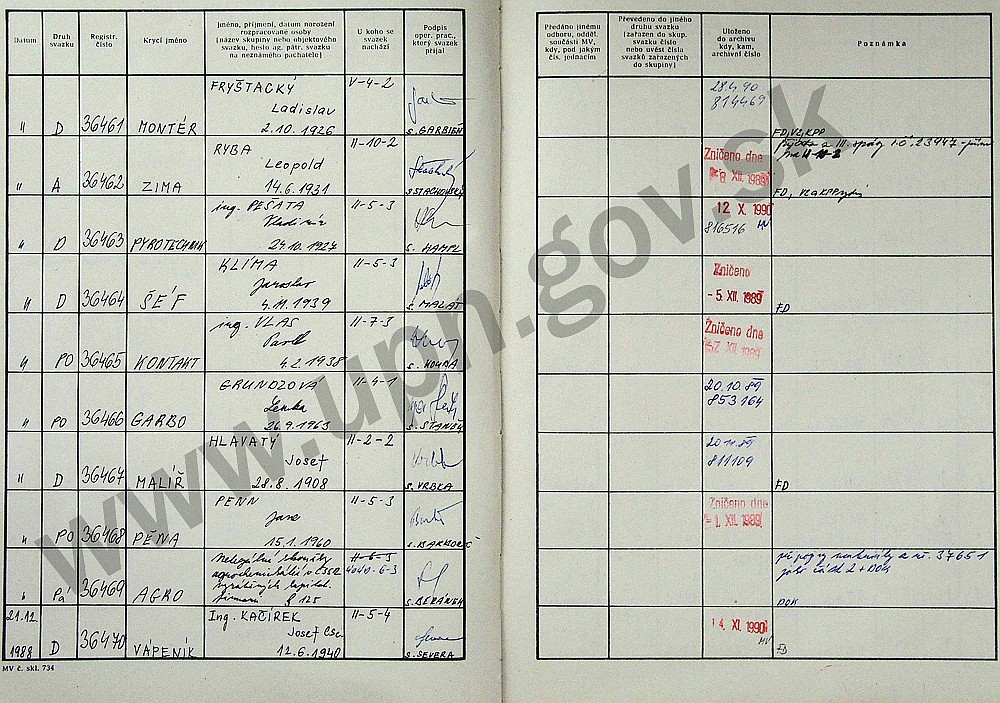 Datum
Druh svazku
Registr. číslo
Krycí jméno
Jméno, příjmení, datum narození
rozpracované osoby
(název skupiny nebo objektového
svazku, heslo ag. pátr. svazku
na neznámého pachatele)
U koho se
svazek
nachází
Podpis
oper. prac.,
který svazek
přijal
Předáno jinému
odboru, odděl.
součásti MV,
kdy, pod jakým
čís. jednacím
Převedeno do jiného
druhu svazku
(zařazen do skup.
svazku číslo
nebo uvést čísla
svazků zařazených
do skupiny)
Uloženo
do archivu
kdy, kam,
archivní číslo
Poznámka
FRYŠTACKÝ V-4-2
Ladislav
" D 36461 MONTÉR 2.10.1926 s. GARBIEN
28.4.90
814469
FD,V2,KPP
RYBA II-10-2
Leopold
" A 36462 ZIMA 14.6.1931 s. STACHOVSKÝ
Zničeno dne
8. XII. 1989
FD,
ing. PEŠATA II-5-3
Vladimír
" D 36463 PYROTECHNIK 24.10.1927 s. HAMPL
12 X. 1990
816516 MV
KLÍMA II-5-3
Jaroslav
" D 36464 ŠÉF 4.11.1939 s. MALÁT
Zničeno
- 5. XII. 1989
FD
ing. VLAS II-7-3
Pavel
" PO 36465 KONTAKT 4.2.1938 s. KOUBA
Zničeno dne
7. XII. 1989
GRUNDZOVÁ II-4-1
Lenka
" PO 36466 GARBO 26.9.1963 s. STANĚK
20.10.89
853164
HLAVATÝ II-2-2
Josef
" D 36467 MALÍŘ 28.8.1908 s. VRBKA
20.11.89
811109
FD
PENN II-5-3
" PO 36468 PĚNA 15.1.1960
Zničeno dne
- 1. XII. 1989
Nelegální
agrochemikálií v ČSSR
§ 125
II-6-3
4040-6-3
" Pá 36469 AGRO s. BERÁNEK
a č. 37651
části 2 + DOK
DOK
21.12.
1988 D 36470 VÁPENÍK
Ing. KAČÍREK II-5-4
Josef CSc
12.6.1940 s. SEVERA
14. XI. 1990
MV
FD
MV č. skl. 734
www.upn.gov.sk